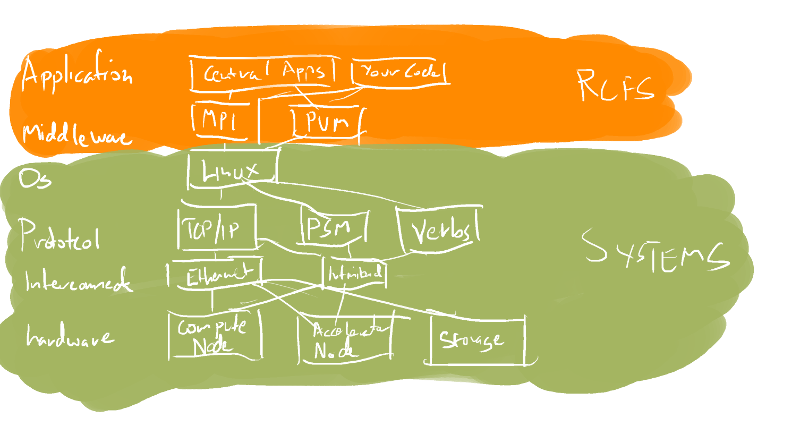 Application Central Apps Your Code RCFS
Middleware MPI PVM
Os Linux
Protocol TCP/IP PSM Verbs SYSTEMS
Interconnect Ethernet Infiniband
hardware Compute Node Accelerator Node Storage